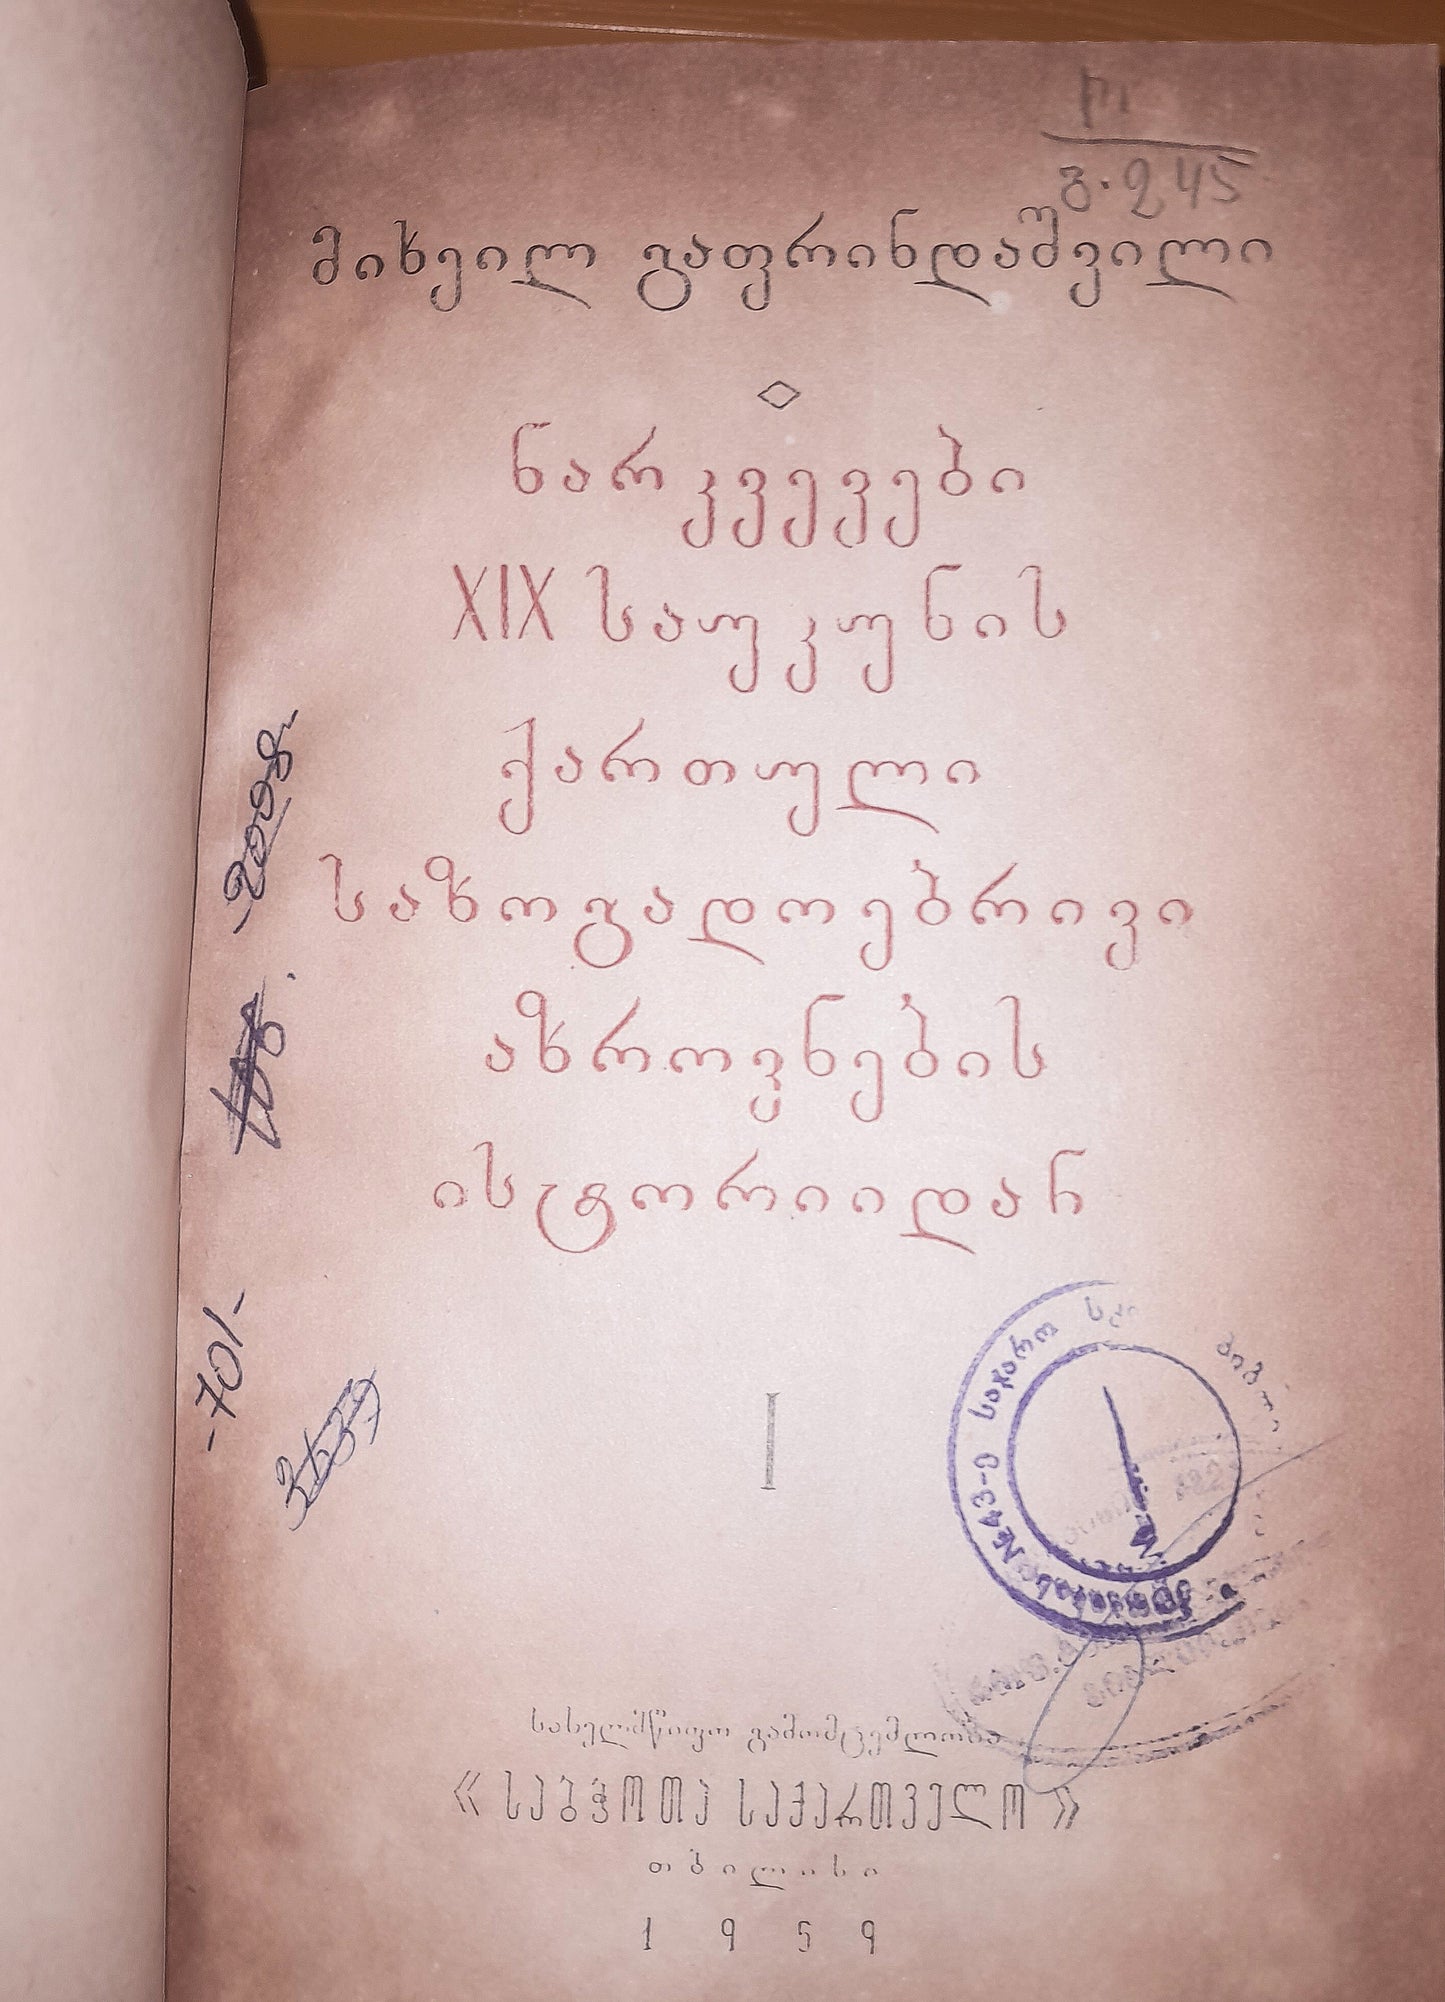 გ.245
მიხეილ გაფრინდაშვილი
ნარკვევები
XIX საუკუნის
ქართული
საზოგადოებრივი
აზროვნების
ისტორიიდან
-2008-
-701-
3439
I
№43-ე საჯარო
სახელმწიფო გამომცემლობა
« საბჭოთა საქართველო »
თბილისი
1959